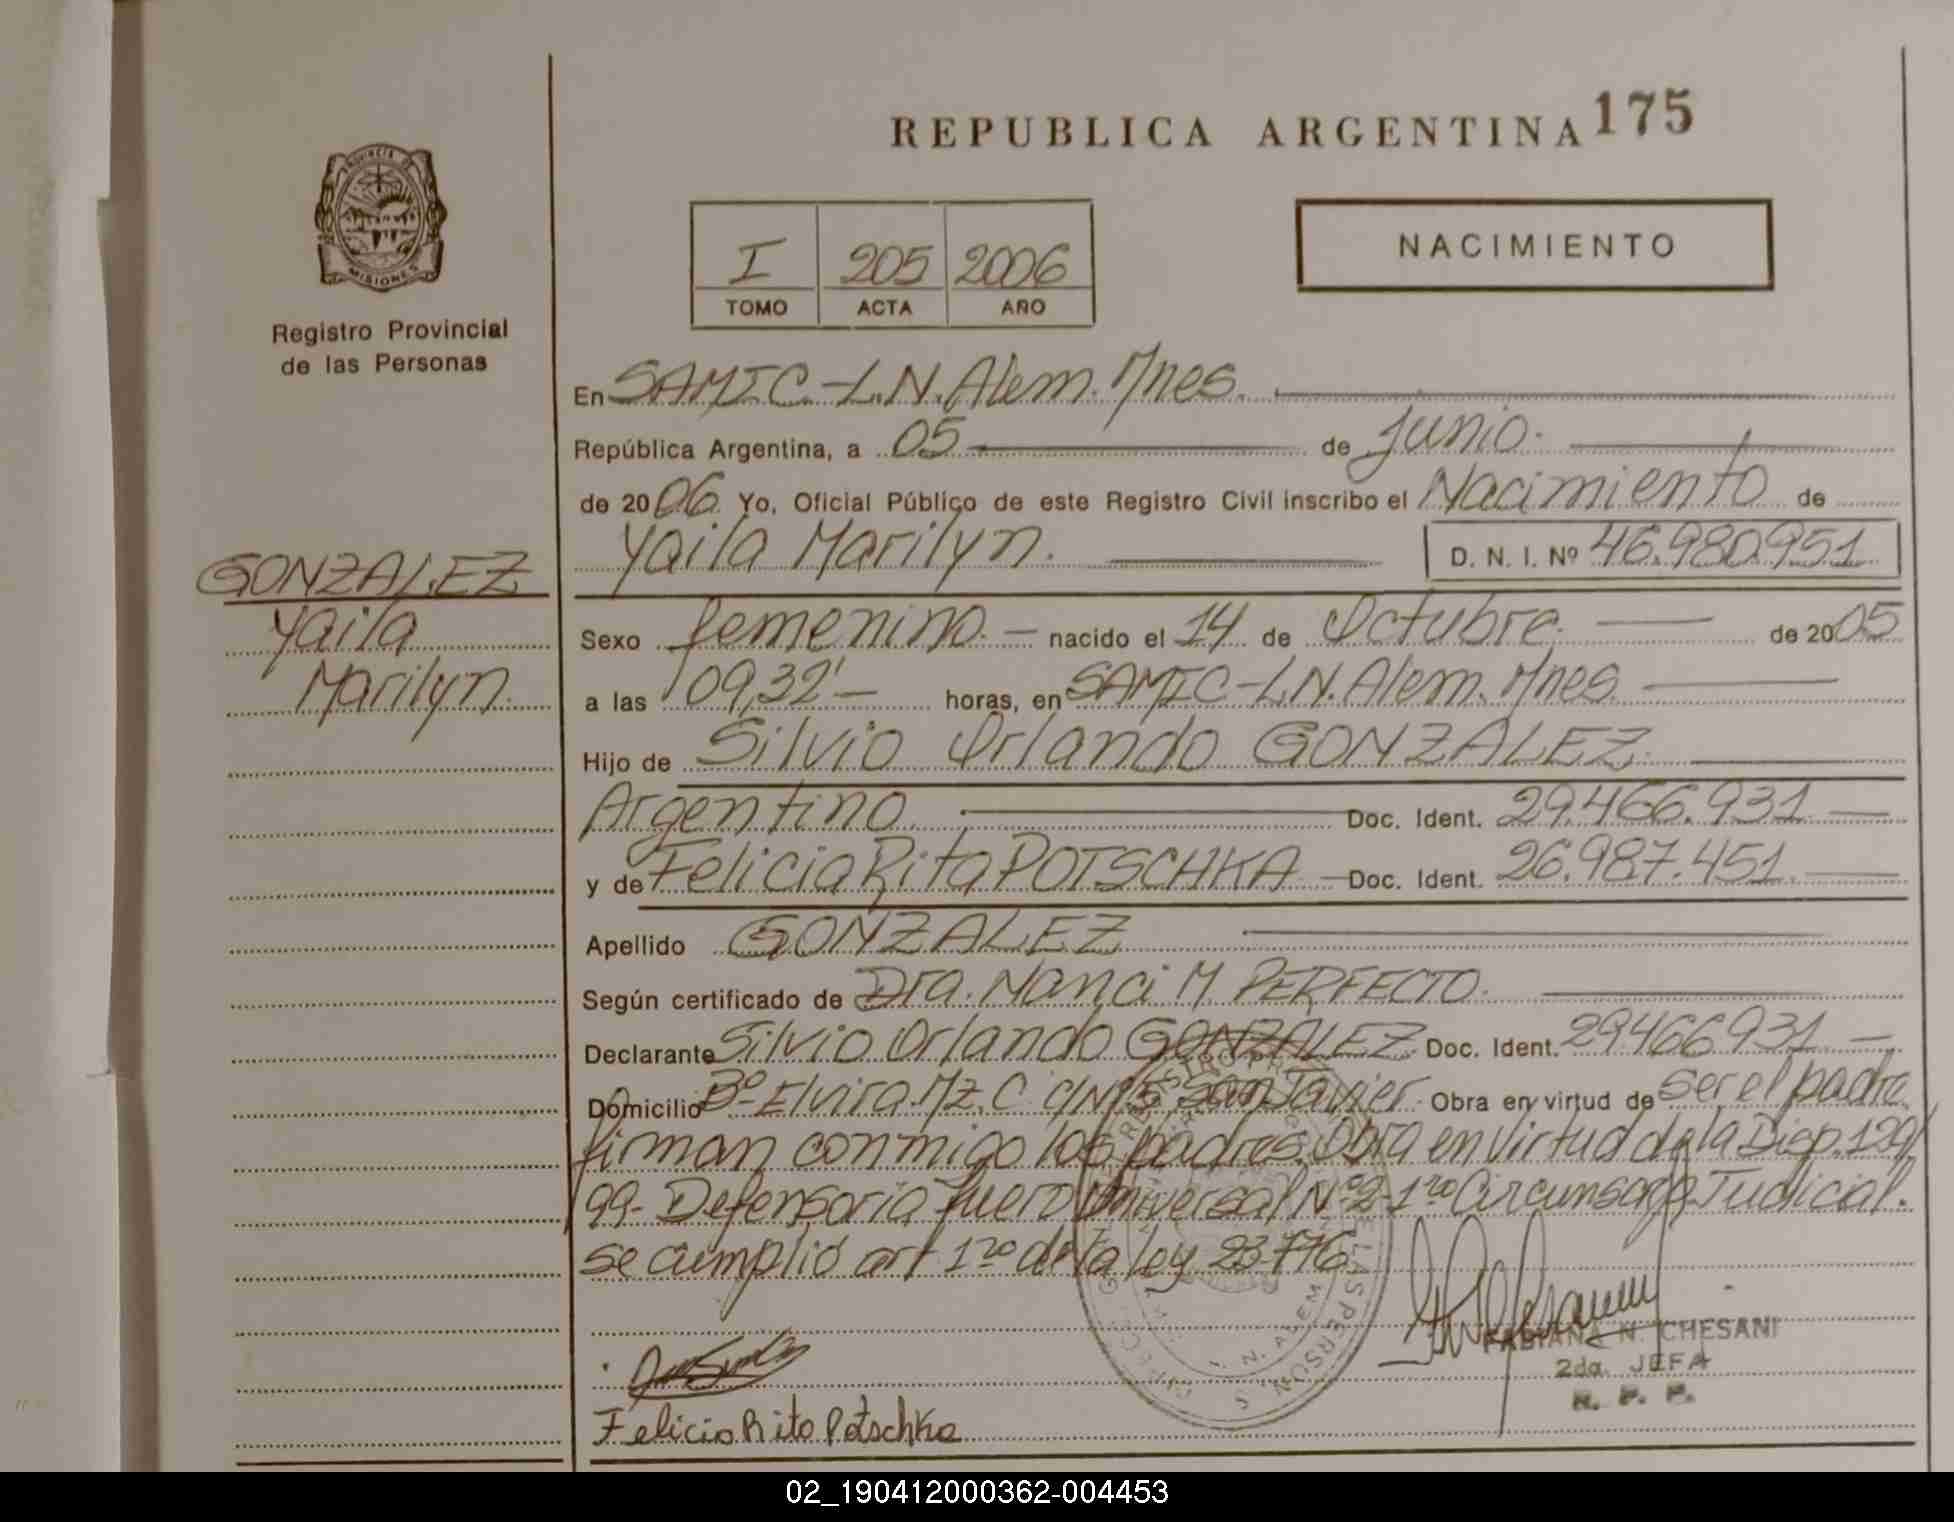 REPUBLICA ARGENTINA 175
PROVINCIA DE
MISIONES
Registro Provincial
de las Personas
I 205 2006
TOMO ACTA AÑO
NACIMIENTO
En SAMIC-L.N.Alem.Mnes.
República Argentina, a 05 de junio.
de 2006 Yo, Oficial Público de este Registro Civil inscribo el Nacimiento de
Yaila Marilyn. D. N. I. Nº 46.980.951
GONZALEZ
Yaila
Marilyn.
Sexo femenino.- nacido el 14 de Octubre. de 2005
a las 09,32'- horas, en SAMIC-L.N.Alem.Mnes.
Hijo de Silvio Orlando GONZALEZ.
Argentino. Doc. Ident. 29.466.931.
y de Felicia Rita POTSCHKA Doc. Ident. 26.987.451.
Apellido GONZALEZ
Según certificado de Dra. Nanci M. PERFECTO.
Declarante Silvio Orlando GONZALEZ. Doc. Ident. 29466931.-
Domicilio Bº Elvira.Mz.C. c/Nº5, San Javier. Obra en virtud de ser el padre
firman conmigo los padres. Obra en virtud de la Disp.129/
99- Defensoria fuero Universal Nº2-1ro Judicial.
se cumplio art 1ro de la ley 23.776
FABIANA N. CHESANI
2da. JEFA
R. P. P.
Felicia Rita Potschka
L. N. ALEM
02_190412000362-004453